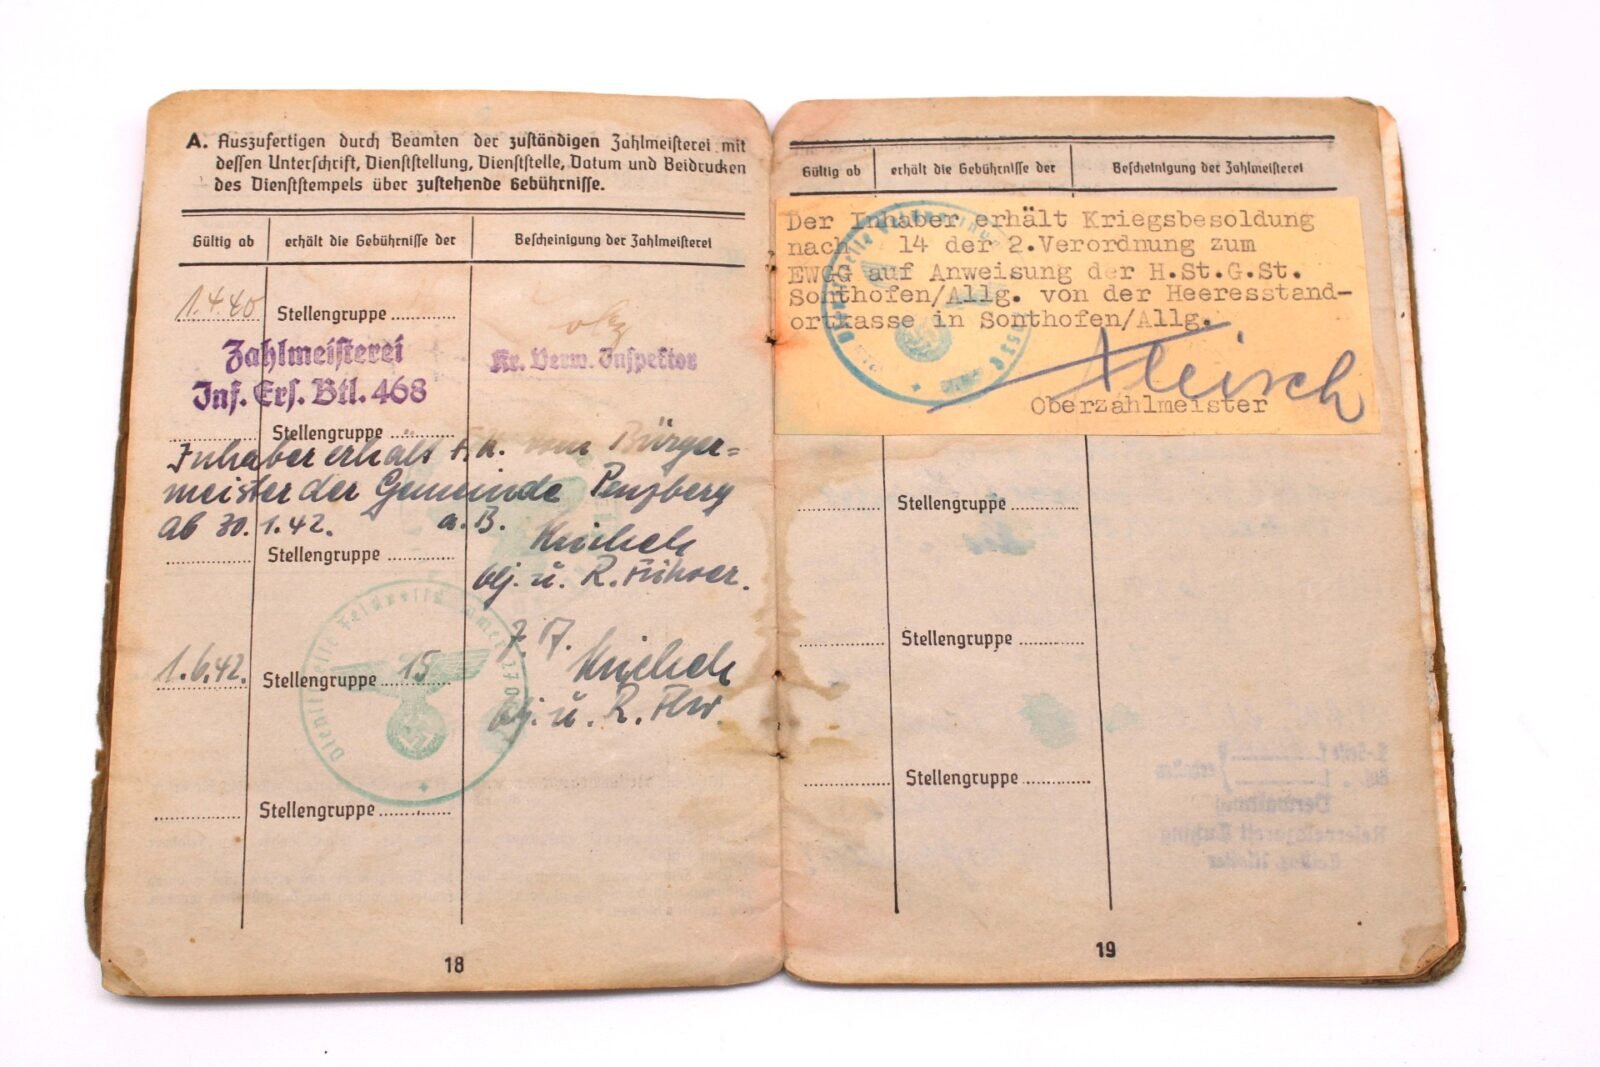 A. Auszufertigen durch Beamten der zuständigen Zahlmeisterei mit
dessen Unterschrift, Dienststellung, Dienststelle, Datum und Beidrucken
des Dienststempels über zustehende Gebührnisse.
Gültig ab erhält die Gebührnisse der Bescheinigung der Zahlmeisterei
1.4.40 Stellengruppe
Zahlmeisterei
Kr. Verw. Inspektor
Inf. Ers. Btl. 468
Stellengruppe
Inhaber erhält vom Bürger=
meister der Gemeinde Penzberg
ab 30.1.42. a.B.
Stellengruppe
u. R.
1.6.42. Stellengruppe 15
u. R.
Dienststelle Feldpostnummer
Stellengruppe
18
Gültig ab erhält die Gebührnisse der Bescheinigung der Zahlmeisterei
Der Inhaber erhält Kriegsbesoldung
nach 14 der 2.Verordnung zum
EWGG auf Anweisung der H.St.G.St.
Sonthofen/Allg. von der Heeresstand-
ortkasse in Sonthofen/Allg.
Oberzahlmeister
Stellengruppe
Stellengruppe
Stellengruppe
19